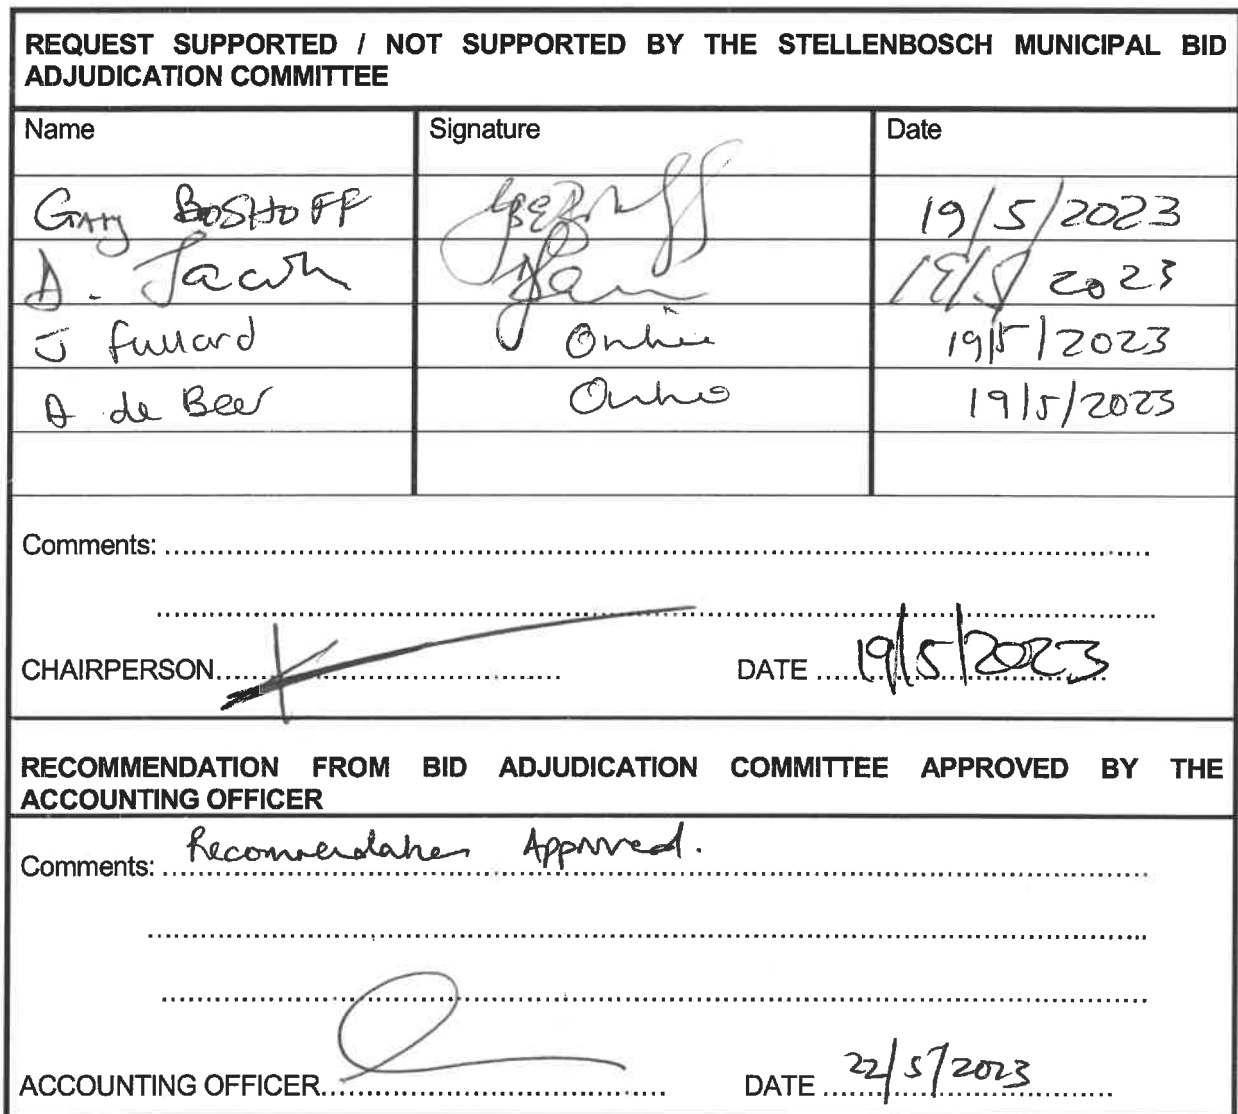 REQUEST SUPPORTED / NOT SUPPORTED BY THE STELLENBOSCH MUNICIPAL BID
ADJUDICATION COMMITTEE
Name Signature Date
Gary BOSHOFF 19/5/2023
D. Jacobs 19/5/2023
J Fullard Online 19/5/2023
A de Beer Online 19/5/2023
Comments: ..........
..........
CHAIRPERSON.......... DATE .....19/5/2023
RECOMMENDATION FROM BID ADJUDICATION COMMITTEE APPROVED BY THE
ACCOUNTING OFFICER
Comments: Recommendation Approved.
..........
..........
ACCOUNTING OFFICER.......... DATE ..... 22/5/2023